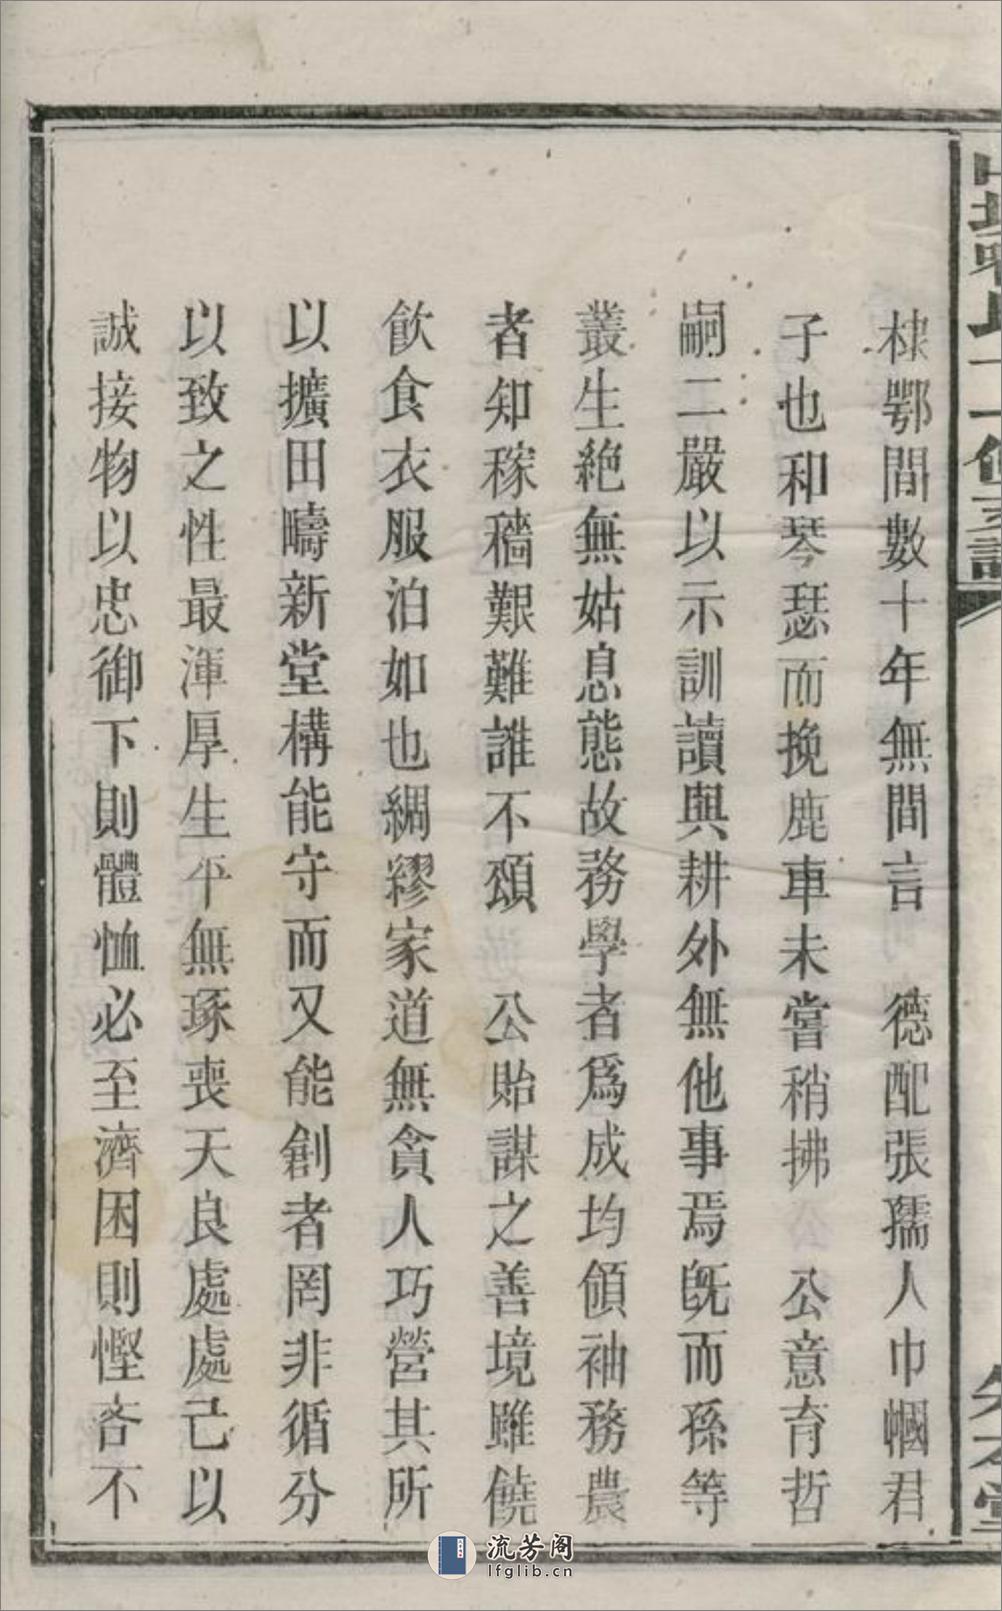 棣鄂間數十年無間言　德配張孺人巾幗君
子也和琴瑟而挽鹿車未嘗稍拂　公意育哲
嗣二嚴以示訓讀與耕外無他事焉旣而孫等
叢生絶無姑息態故務學者爲成均領袖務農
者知稼穡艱難誰不頌　公貽謀之善境雖饒
飲食衣服泊如也綢繆家道無貪人巧營其所
以擴田疇新堂構能守而又能創者罔非循分
以致之性最渾厚生平無琢喪天良處處己以
誠接物以忠御下則體恤必至濟困則慳吝不
流芳阁
lfglib.cn